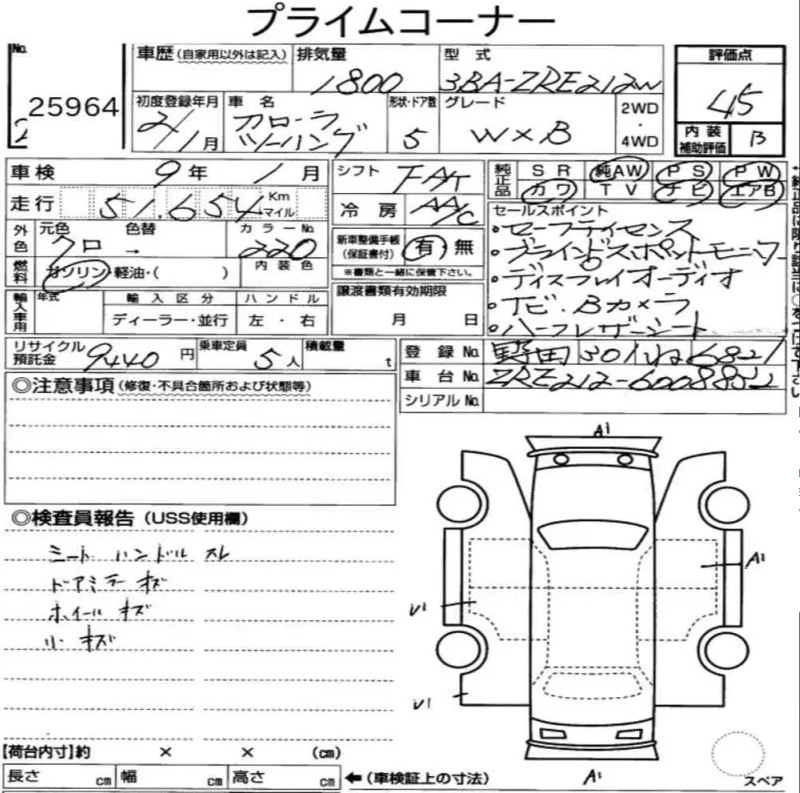 プライムコーナー
No. 25964
車歴 (自家用以外は記入)
排気量 1800
型式 3BA-ZRE212W
評価点 4.5
初度登録年月 2/1月
車名 カローラ ツーリング
形状・ドア数 5
グレード W×B
2WD・4WD
内装補助評価 B
車検 9年 1月
シフト FAT
純正品 SR 純AW PS PW
カワ TV ナビ エアB
走行 51,654 Km マイル
冷房 AA/C
セールスポイント
・セーフティセンス
・ブラインドスポットモニター
・ディスプレイオーディオ
・ナビ.Bカメラ
・ハーフレザーシート
外色 元色 クロ → 色替 カラーNo. 220
新車整備手帳(保証書付) 有 無
※書類と一緒に保管下さい。
燃料 ガソリン・軽油・( ) 内装色
輸入車用 年式 輸入区分 ハンドル
ディーラー・並行 左・右
譲渡書類有効期限
月 日
リサイクル預託金 9440円
乗車定員 5人
積載量 t
登録No. 野田 301 6821
車台No. ZRE212-6008852
シリアルNo.
◎注意事項 (修復・不具合箇所および状態等)
◎検査員報告 (USS使用欄)
シート ハンドル スレ
ドアミラー キズ
ホイール キズ
小 キズ
A1
A1
U1
U1
A1
スペア
【荷台内寸】約 × × (cm)
長さ cm 幅 cm 高さ cm
←(車検証上の寸法)